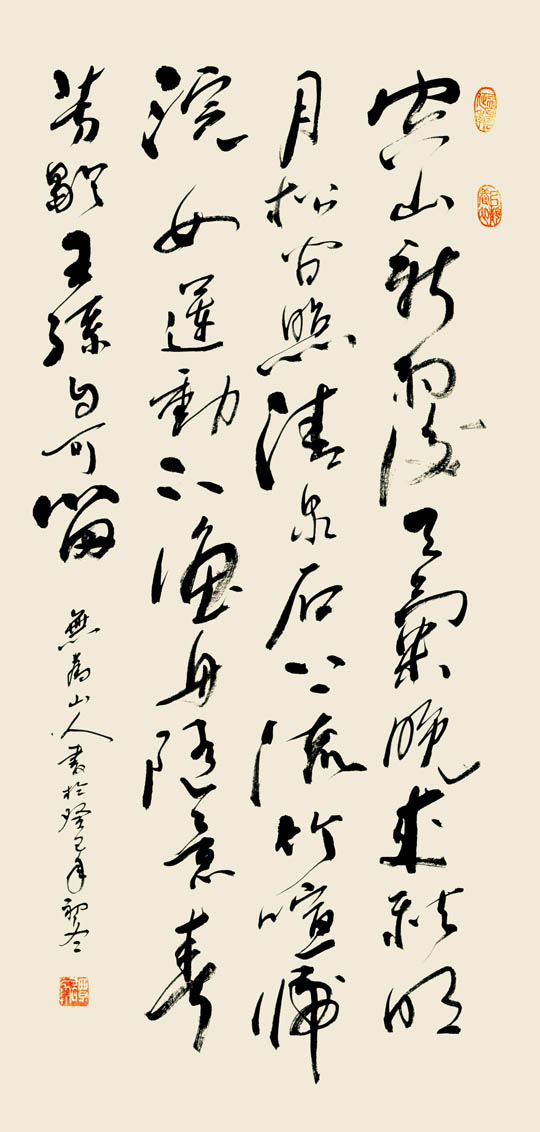 空山新雨後天氣晚來秋明
月松間照清泉石上流竹喧歸
浣女蓮動下漁舟隨意春
芳歇王孫自可留
無為山人書於癸巳年初冬